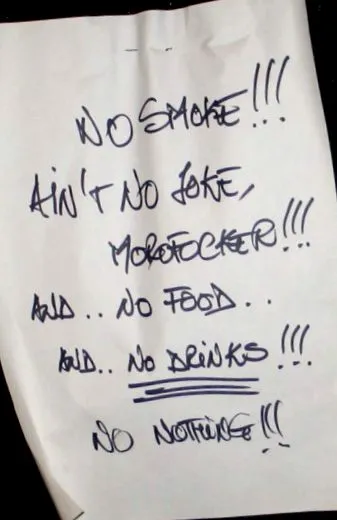 NO SMOKE!!!
AIN'T NO JOKE,
MOROFOCKER!!!
AND.. NO FOOD..
AND.. NO DRINKS!!!
NO NOTHING!!!